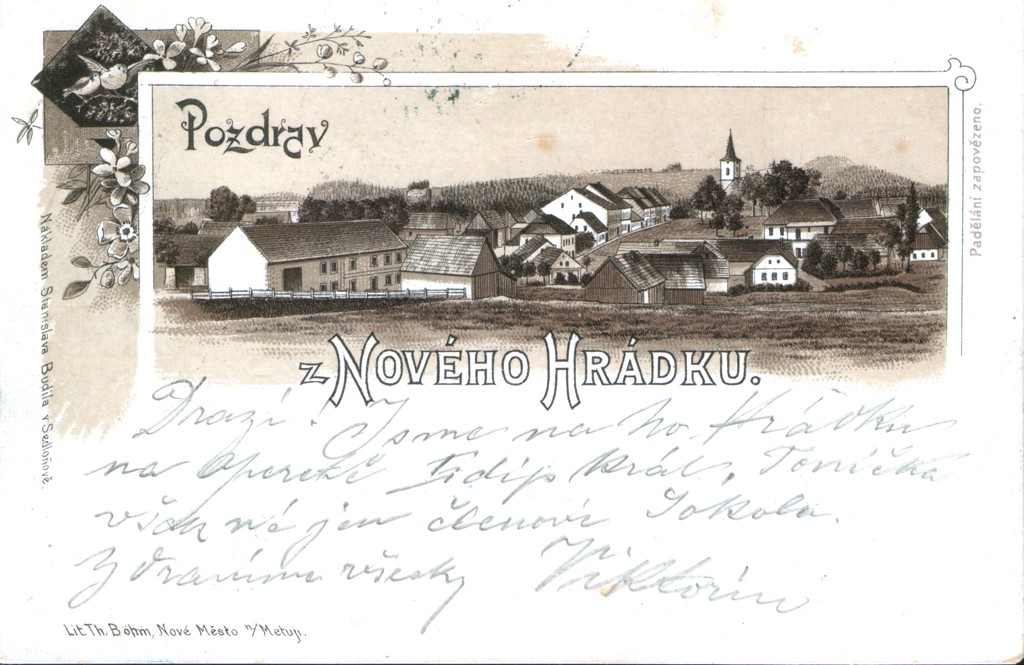 Pozdrav
z Nového Hrádku.
Padělání zapovězeno.
Nákladem Stanislava Budila v Sedloňově.
Drazí! Jsme na No. Hrádku
na operetě král, Tonička
však né jen členové Sokola.
Zdravíme všecky Viktorin
Lit. Th. Böhm, Nové Město n/Metují.